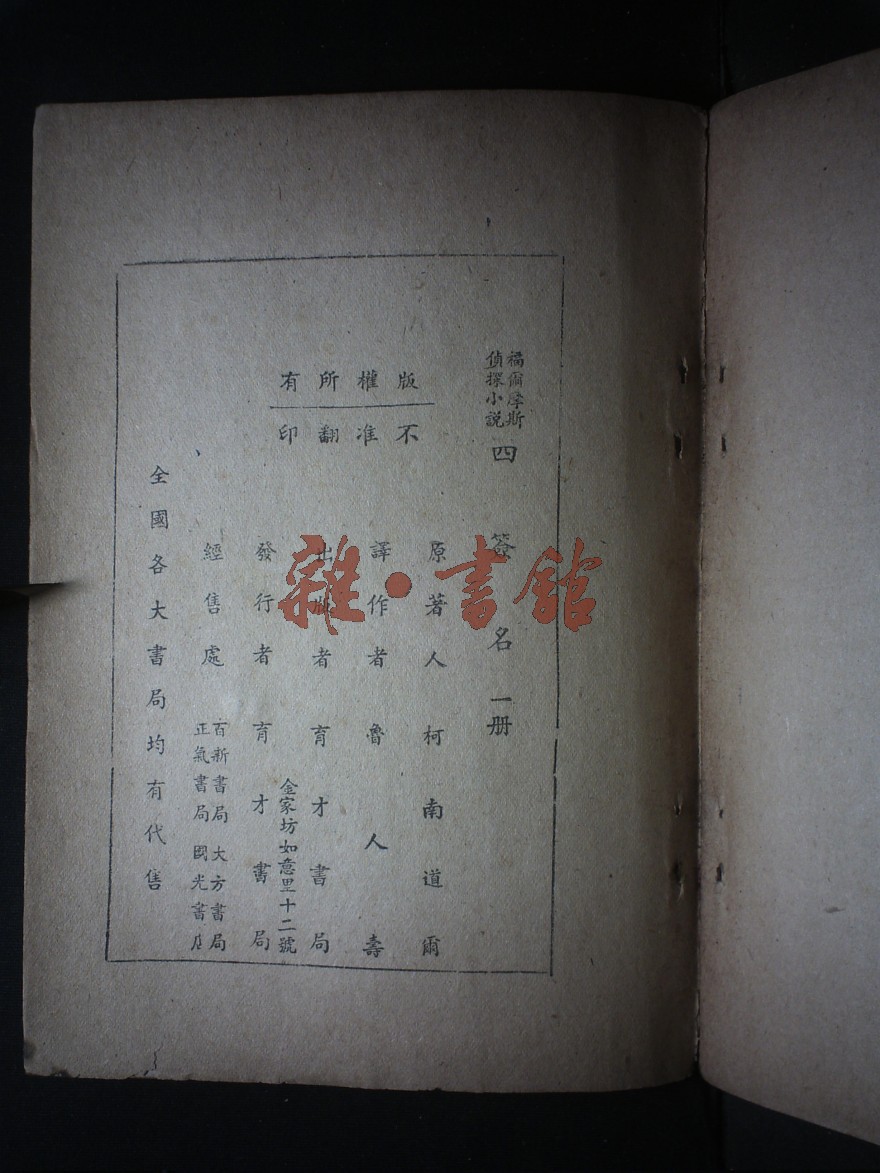 福爾摩斯
偵探小説
四簽名一册
版權所有
不准翻印
原著人柯南道爾
譯作者魯人壽
出版者育才書局
金家坊如意里十二號
發行者育才書局
經售處
百新書局 大方書局
正氣書局 國光書店
全國各大書局均有代售
雜·書館